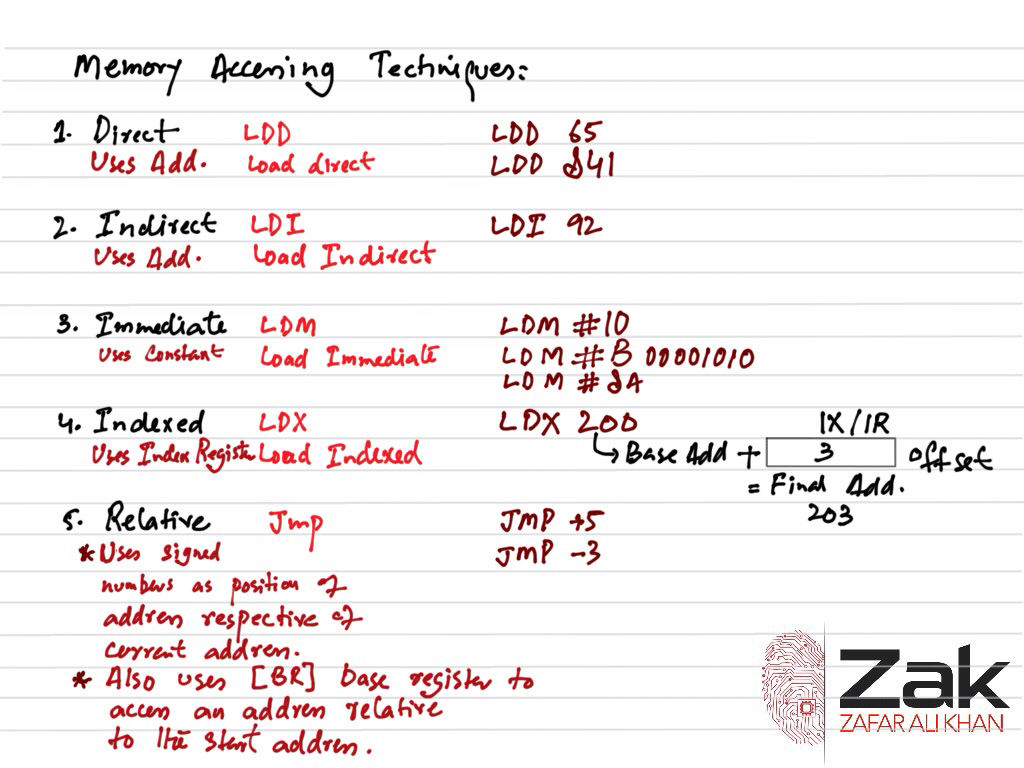 Memory Accessing Techniques:
1. Direct LDD LDD 65
Uses Add. Load direct LDD &41
2. Indirect LDI LDI 92
Uses Add. Load Indirect
3. Immediate LDM LDM #10
Uses Constant Load Immediate LDM #B 00001010
LDM #&A
4. Indexed LDX LDX 200 IX/IR
Uses Index Register Load Indexed ↳ Base Add + 3 Offset
= Final Add.
203
5. Relative Jmp JMP +5
* Uses signed JMP -3
numbers as position of
address respective of
current address.
* Also uses [BR] base register to
access an address relative
to the start address.
Zak
ZAFAR ALI KHAN